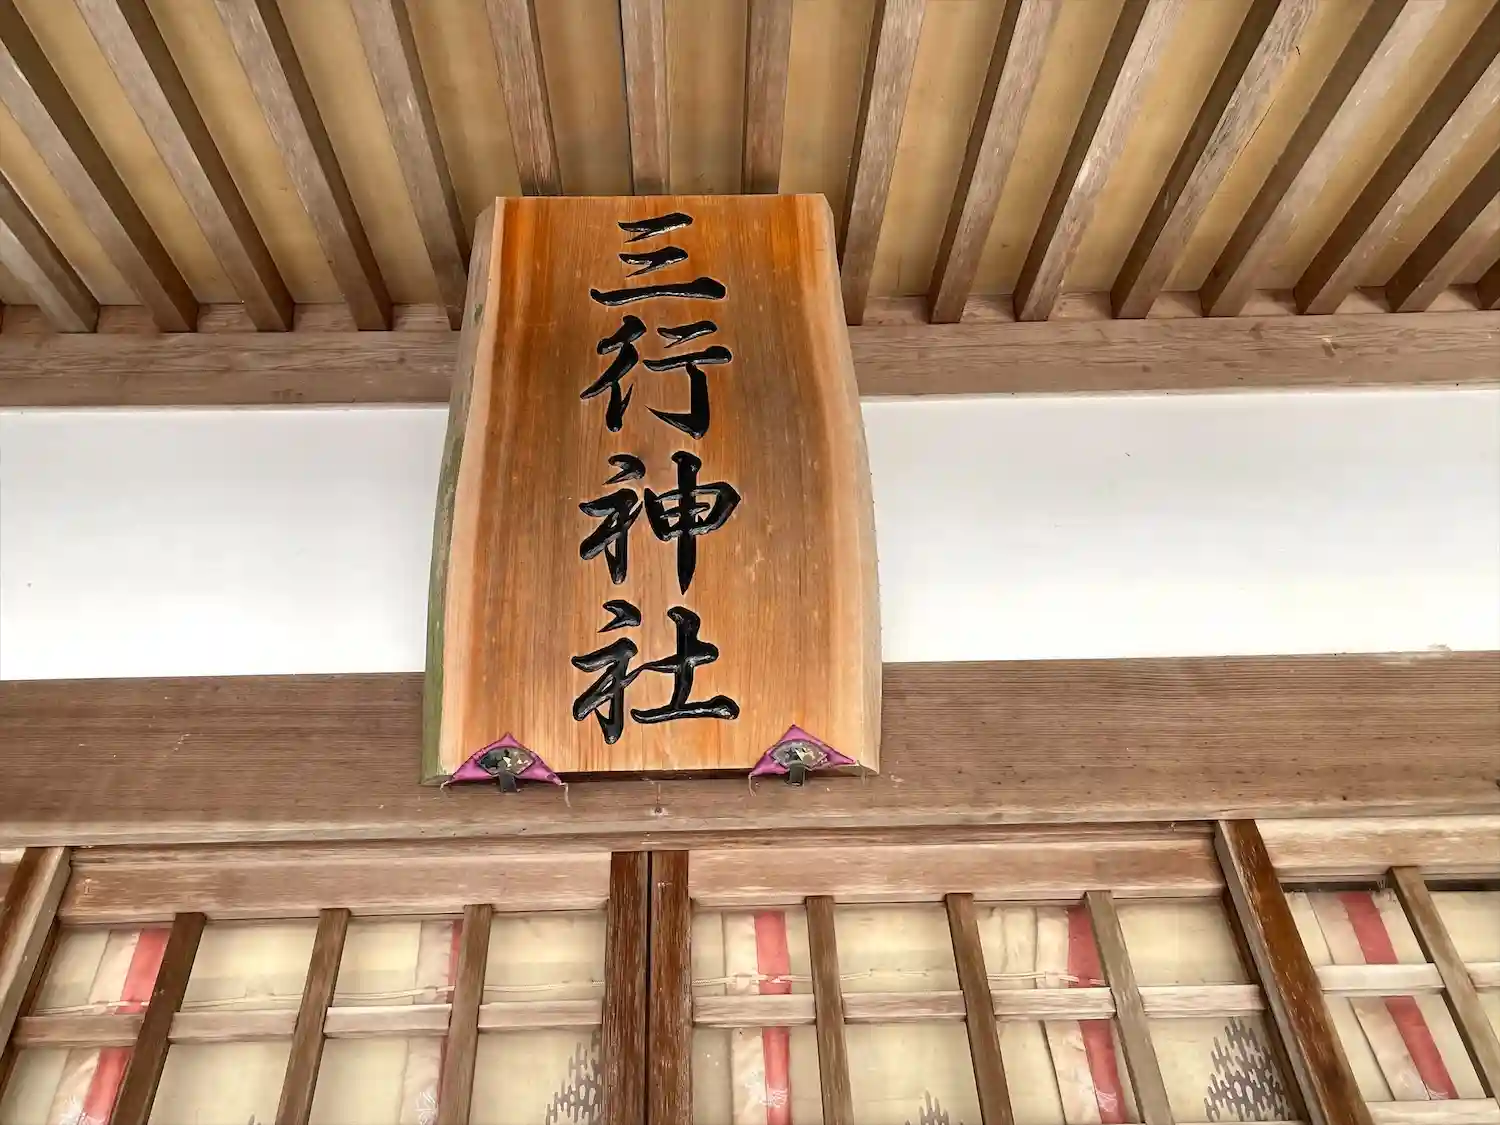 三行神社